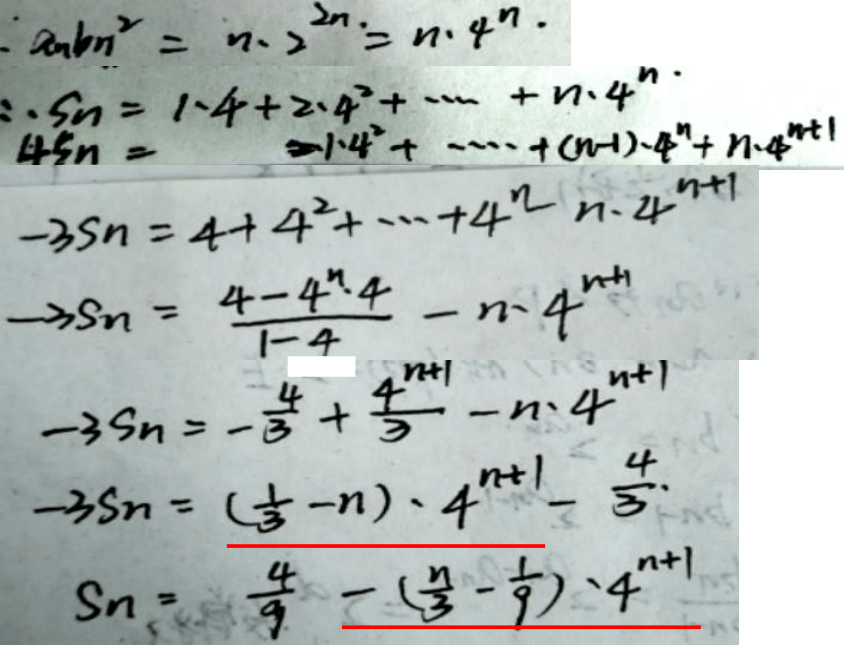 ∴ aₙbₙ² = n·2²ⁿ· = n·4ⁿ.
∴ Sₙ = 1·4 + 2·4² + ····· + n·4ⁿ.
4Sₙ = 1·4² + ····· + (n-1)·4ⁿ + n·4ⁿ⁺¹
-3Sₙ = 4 + 4² + ··· + 4ⁿ - n·4ⁿ⁺¹
-3Sₙ = (4 - 4ⁿ·4)/(1-4) - n·4ⁿ⁺¹
-3Sₙ = -4/3 + 4ⁿ⁺¹/3 - n·4ⁿ⁺¹
-3Sₙ = (1/3 - n)·4ⁿ⁺¹ - 4/3.
Sₙ = 4/9 - (n/3 - 1/9)·4ⁿ⁺¹